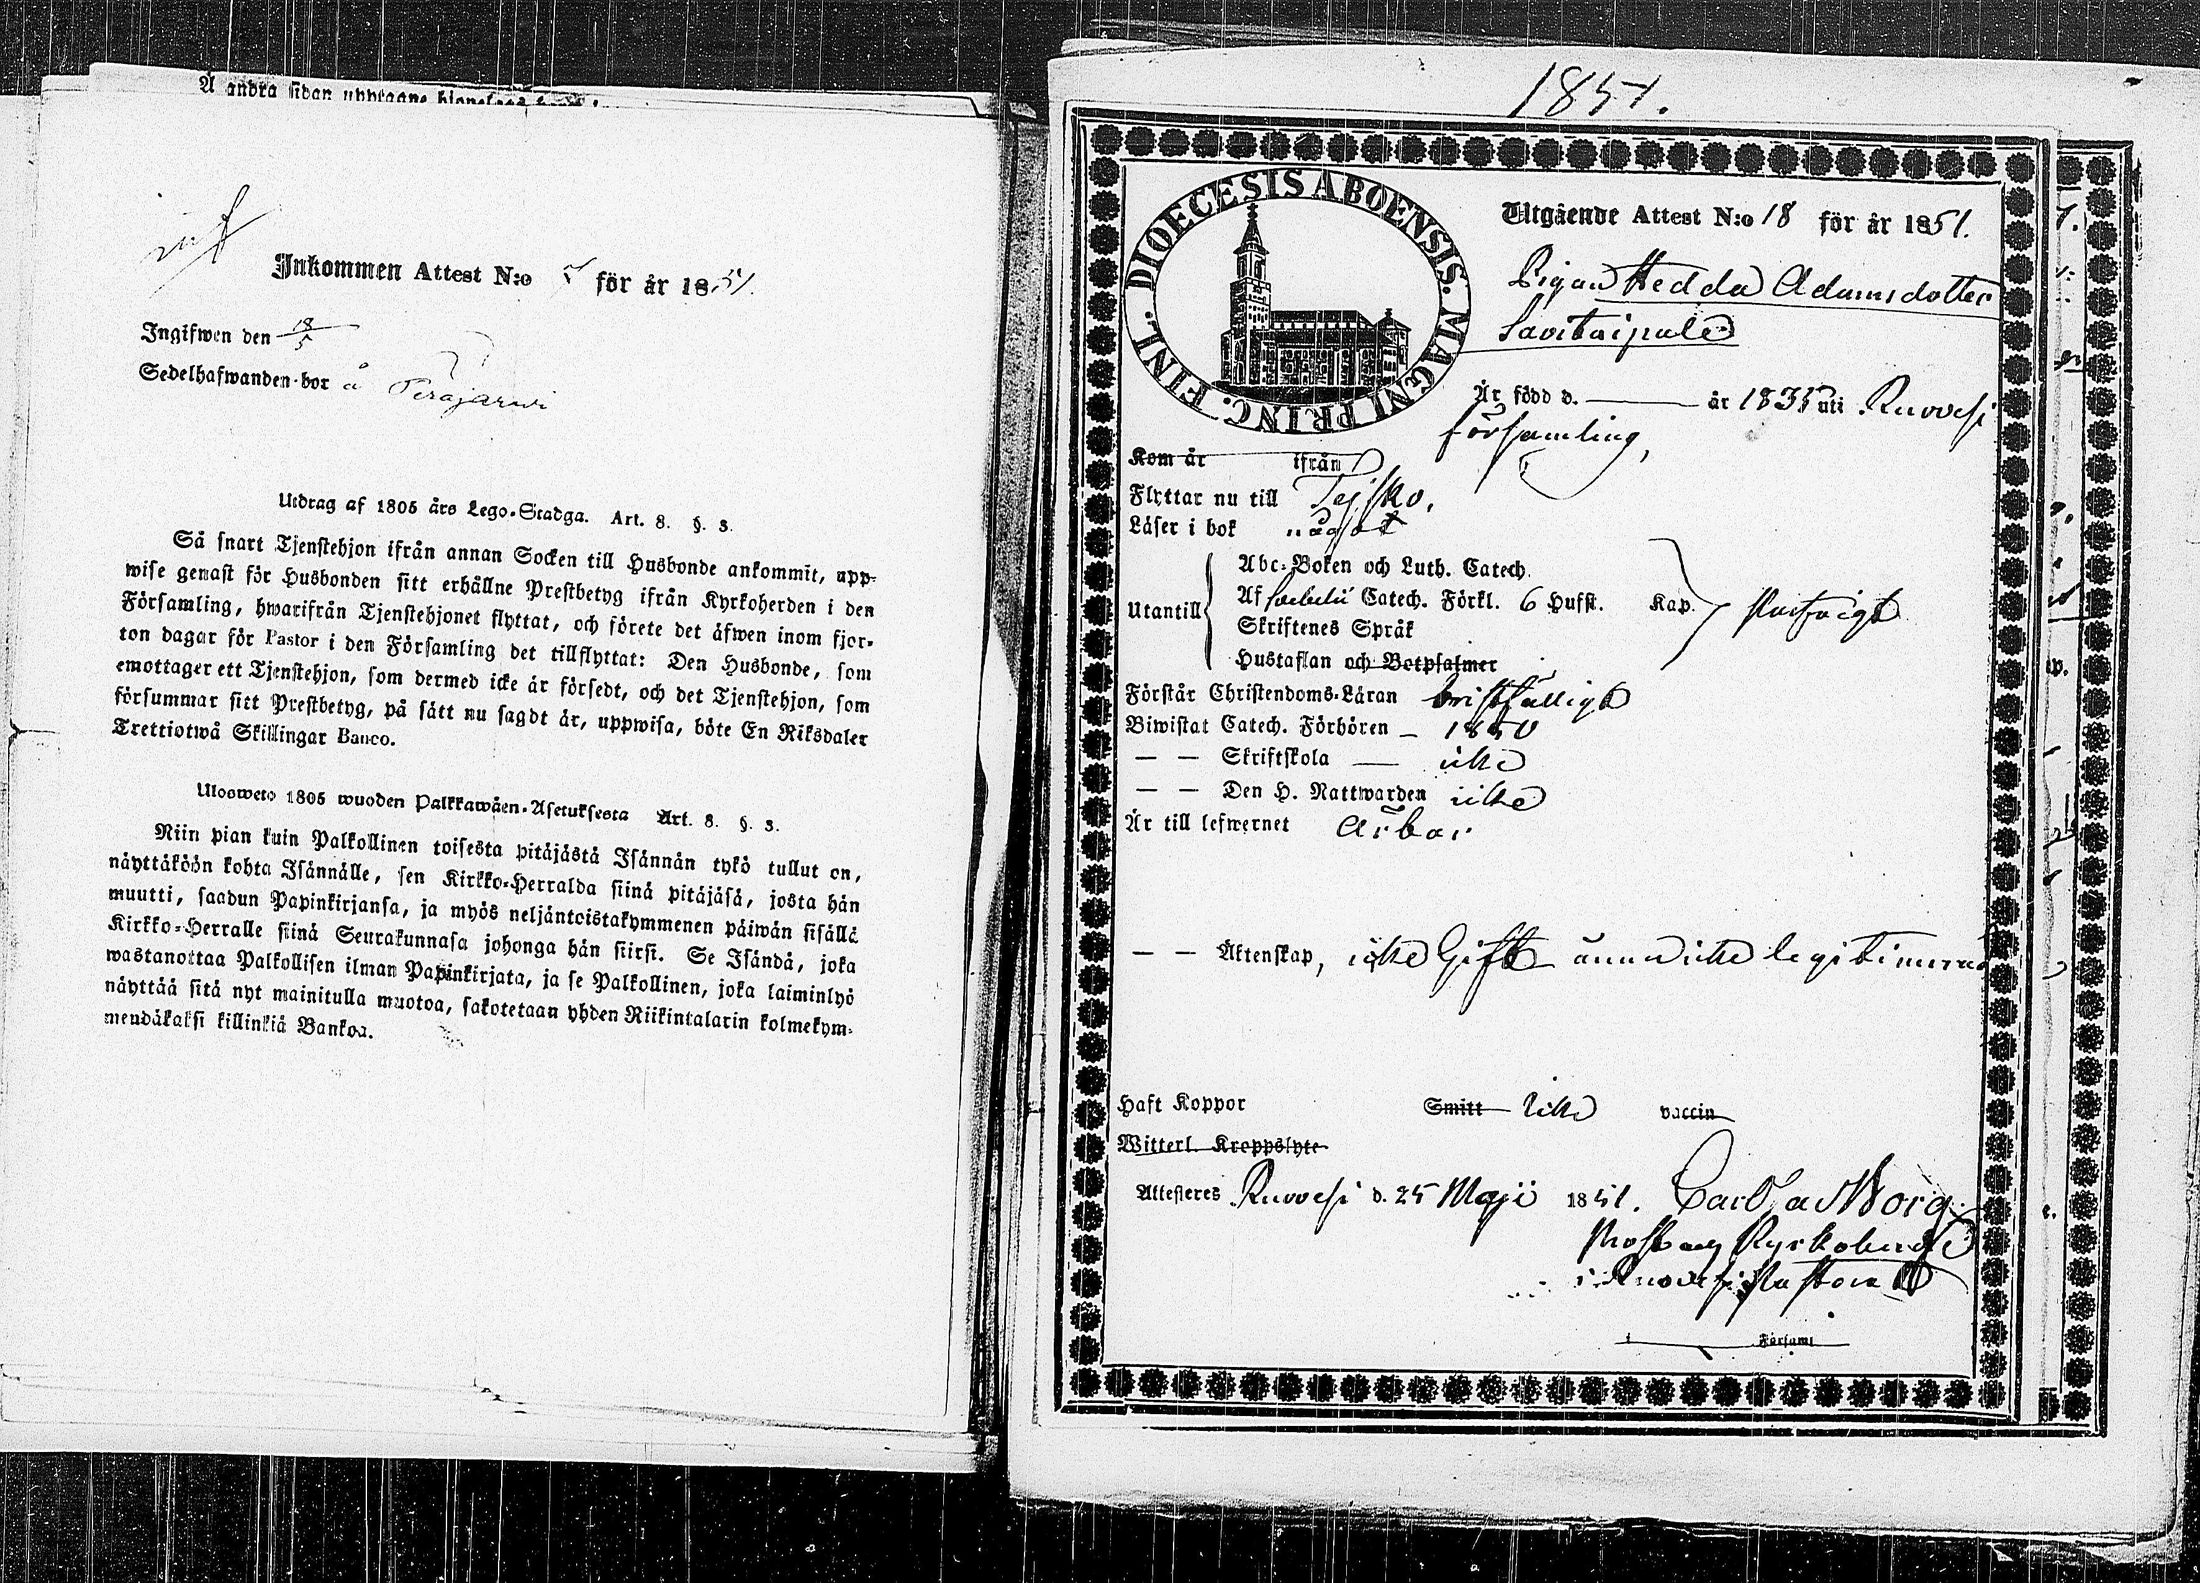 Å andra sidan upptagne
Inkommen Attest N:o för år 1851.
Ingifwen den 18/5
Sedelhafwanden bor å Peräjärwi
Utdrag af 1805 års Lego-Stadga. Art. 8. §. 3.
Så snart Tjenstehjon ifrån annan Socken till Husbonde ankommit, upp-
wise genast för Husbonden sitt erhållne Prestbetyg ifrån Kyrkoherden i den
Församling, hwarifrån Tjenstehjonet flyttat, och förete det äfwen inom fjor-
ton dagar för Pastor i den Församling det tillflyttat: Den Husbonde, som
emottager ett Tjenstehjon, som dermed icke är försedt, och det Tjenstehjon, som
försummar sitt Prestbetyg, på sätt nu sagdt är, uppwisa, böte En Riksdaler
Trettiotwå Skillingar Banco.
Ulosweto 1805 wuoden Palkkawäen-Asetuksesta Art. 8. §. 3.
Niin pian kuin Palkollinen toisesta pitäjästä Isännän tykö tullut on,
näyttäköön kohta Isännälle, sen Kirkko-Herralda siinä pitäjäsä, josta hän
muutti, saadun Papinkirjansa, ja myös neljäntoistakymmenen päiwän sisällä
Kirkko-Herralle siinä Seurakunnasa johonga hän siirsi. Se Isändä, joka
wastanottaa Palkollisen ilman Papinkirjata, ja se Palkollinen, joka laiminlyö
näyttää sitä nyt mainitulla muotoa, sakotetaan yhden Riikintalarin kolmekym-
mendäkaksi killinkiä Bankoa.
1851.
DIOECESIS ABOENSIS. MAGNI PRINC. FINL.
Utgående Attest N:o 18 för år 1851.
Pigan Hedda Adamsdotter
Savitaipale
Är född d. — år 1835 uti Ruovesi
församling,
Kom år ifrån
Flyttar nu till Tejsko.
Läser i bok något
Utantill
Abc-Boken och Luth. Catech.
Af Catech. Förkl. 6 Hufst. Kap.
Skriftenes Språk
Hustaflan och Botpsalmer
Förstår Christendoms-Läran bristfälligt
Biwistat Catech. Förhören — 1850
— — Skriftskola — icke
— — Den H. Nattwarden icke
Är till lefwernet ärbar
— — Äktenskap, icke Gift ännu icke legitimerad
Haft Koppor Smitt icke vaccin
Witterl. Kroppslyte
Attesteres Ruovesi d. 25 Maji 1851. Carl
Prost och Kyrkoherde
i Ruovesi Pastorat
Förfaml